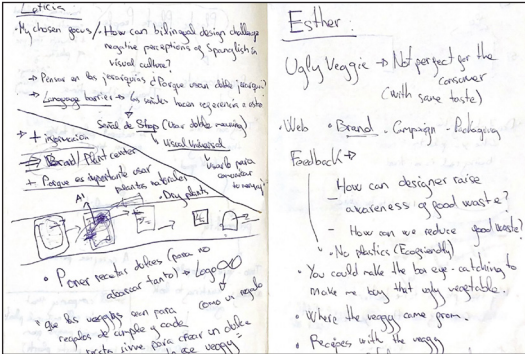 Leticia
• My chosen focus/. How can bilingual design challenge
negative perceptions of Spanglish in
visual culture?
→ Pensar en las jerarquías ¿Porque usan doble jerarquía?
→ Language barriers → las señales hacen referencia a esto
Señal de Stop (Usar doble meaning)
Visual Universal
usarlo para
comunicar
tu mensaje
→ + inspiración
→ Brand/ Plant center
+ Porque es importante usar
plantas naturales
A1
Dry plants
• Poner recetas dobles (para no
abarcar tanto) → Logo
como un regalo
"Que las veggies sean para
regalos de cumple y cada
receta sirve para crear un dulce
ese veggy"
Esther:
Ugly Veggie → Not perfect for the
consumer
(with same taste)
• Web • Brand • Campaign • Packaging
Feedback →
- How can designer raise
awareness of good waste?
- How can we reduce good waste?
• No plastics (Ecofriendly)
• You could make the box eye-catching to
make me buy that ugly vegetable.
• Where the veggy came from.
• Recipes with the veggy